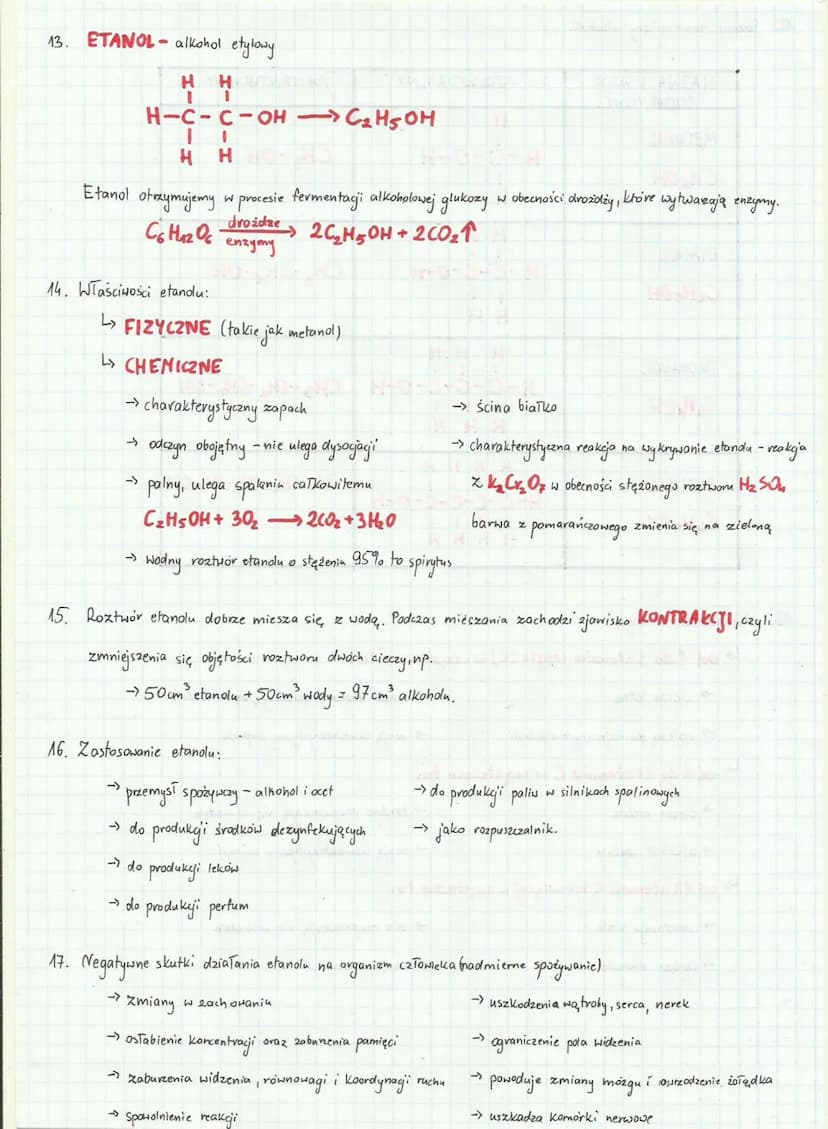 13. ETANOL - alkohol etylowy
H H
H-C-C-OH → C₂H₅OH
H H
Etanol otrzymujemy w procesie fermentacji alkoholowej glukozy w obecności drożdży, które wytwarzają enzymy.
C₆H₁₂O₆ drożdże enzymy → 2C₂H₅OH + 2CO₂↑
14. Właściwości etanolu:
↳ FIZYCZNE (takie jak metanol)
↳ CHEMICZNE
→ charakterystyczny zapach
→ odczyn obojętny - nie ulega dysocjacji
→ palny, ulega spalaniu całkowitemu
C₂H₅OH + 3O₂ → 2CO₂ + 3H₂O
→ wodny roztwór etanolu o stężeniu 95% to spirytus
→ ścina białko
→ charakterystyczna reakcja na wykrywanie etanolu - reakcja
z K₂Cr₂O₇ w obecności stężonego roztworu H₂SO₄
barwa z pomarańczowego zmienia się na zieloną
15. Roztwór etanolu dobrze miesza się z wodą. Podczas mieszania zachodzi zjawisko KONTRAKCJI, czyli
zmniejszenia się objętości roztworu dwóch cieczy, np.
→ 50cm³ etanolu + 50cm³ wody = 97cm³ alkoholu.
16. Zastosowanie etanolu:
→ przemysł spożywczy - alkohol i ocet
→ do produkcji środków dezynfekujących
→ do produkcji leków
→ do produkcji perfum
→ do produkcji paliw w silnikach spalinowych
→ jako rozpuszczalnik.
17. Negatywne skutki działania etanolu na organizm człowieka (nadmierne spożywanie)
→ zmiany w zachowaniu
→ osłabienie koncentracji oraz zaburzenia pamięci
→ zaburzenia widzenia, równowagi i koordynacji ruchu
→ spowolnienie reakcji
→ uszkodzenia wątroby, serca, nerek
→ ograniczenie pola widzenia
→ powoduje zmiany mózgu i owrzodzenie żołądka
→ uszkadza komórki nerwowe